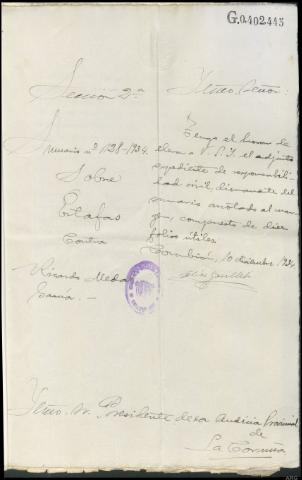 G.0402445
Sección 2ª
Iltmo. Señor:
Sumario nº 128-1934.
Sobre
Estafas
Contra
Ricardo
García.-
Tengo el honor de
elevar a V.S.I. el adjunto
expediente de responsabili-
dad civil, dimanante del
sumario anotado al mar-
gen, compuesto de diez
folios útiles.
Corcubión, 10 diciembre 1934
Iltmo. Sr. Presidente de la Audiencia Provincial
de
La Coruña